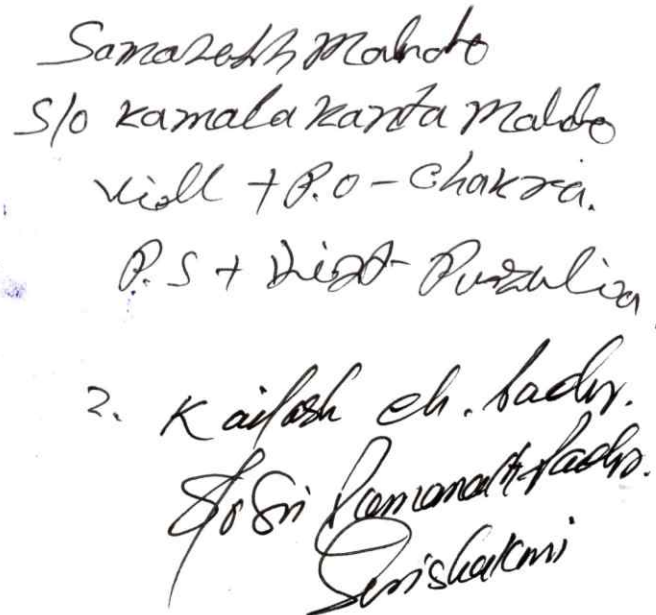 Samaresh Mahato
S/o Kamala Kanta Mahato
Vill + P.O - Chakra.
P.S + Dist - Purulia
2. Kailash ch. Sadhu.
S/o Sri